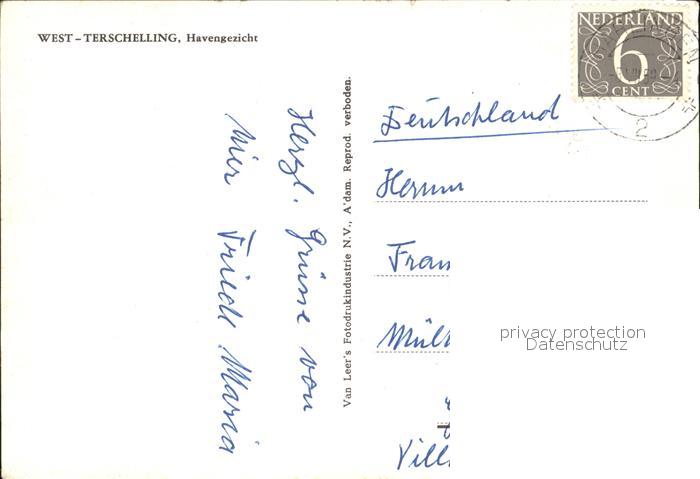 WEST - TERSCHELLING, Havengezicht
NEDERLAND
6
CENT
2
Herzl. Grüsse von
hier Friedl. Maria
Van Leer's Fotodrukindustrie N.V., A'dam. Reprod. verboden.
Deutschland
Herrn
Fran
Mül
Vill
privacy protection
Datenschutz